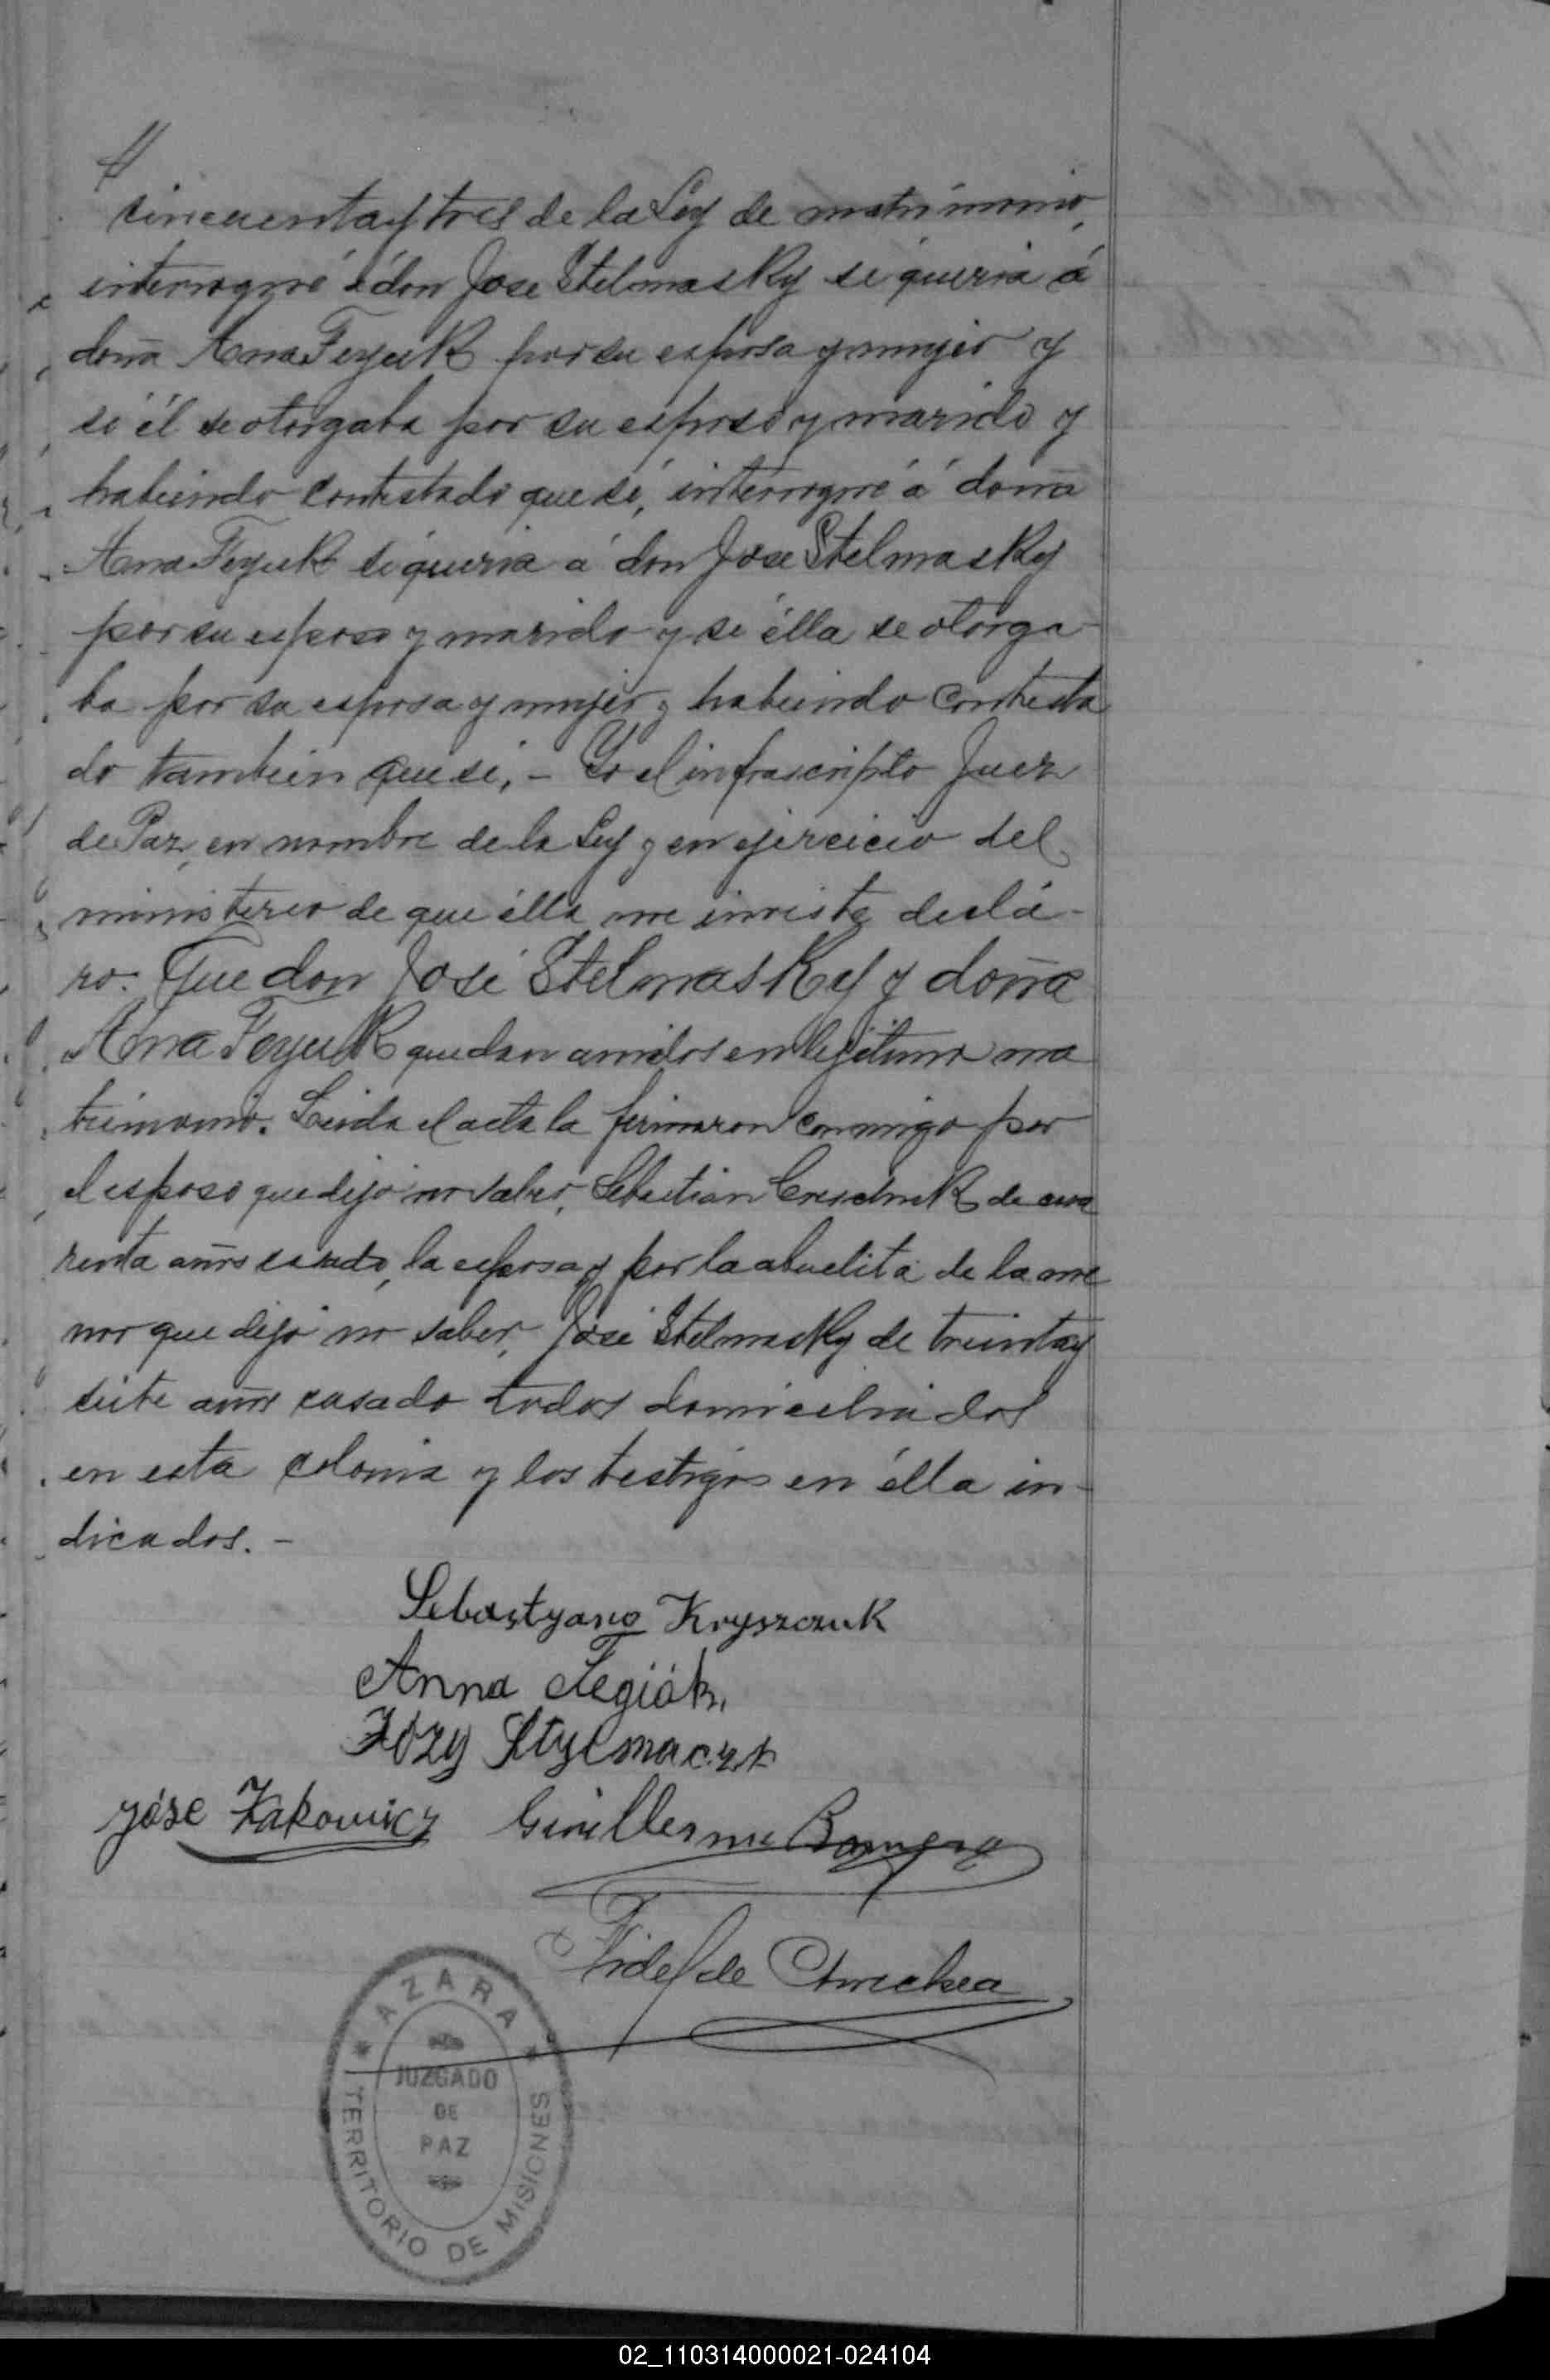 cincuenta y tres de la Ley de matrimonio,
interrogué á don Jose Stelmasky si queria á
doña Ana Feyuk por su esposa y mujer y
si él se otorgaba por su esposo y marido y
habiendo contestado que si, interrogué á doña
Ana Feyuk si queria á don Jose Stelmasky
por su esposo y marido y si élla se otorga-
ba por su esposa y mujer y habiendo contesta
do tambien que si, - Yo el infrascripto Juez
de Paz, en nombre de la Ley y en ejercicio del
ministerio de que élla me inviste, declá-
ro: Que don José Stelmasky y doña
Ana Feyuk quedan unidos en lejítimo ma
trimonio. Leida el acta la firmaron conmigo por
el esposo que dijo no saber, Sebastian Creschuk de cua
renta años casado, la esposa y por la abuelita de la me
nor que dijo no saber, José Stelmasky de treinta y
siete años casado todos domiciliados
en esta colonia y los testigos en élla in-
dicados. -
Sebastyano Kryszczuk
Anna Fegiók
Józy Stylmaczk
jóse Zakowicz Guillermo
Fidel de
AZARA
JUZGADO
DE
PAZ
TERRITORIO DE MISIONES
02_110314000021-024104